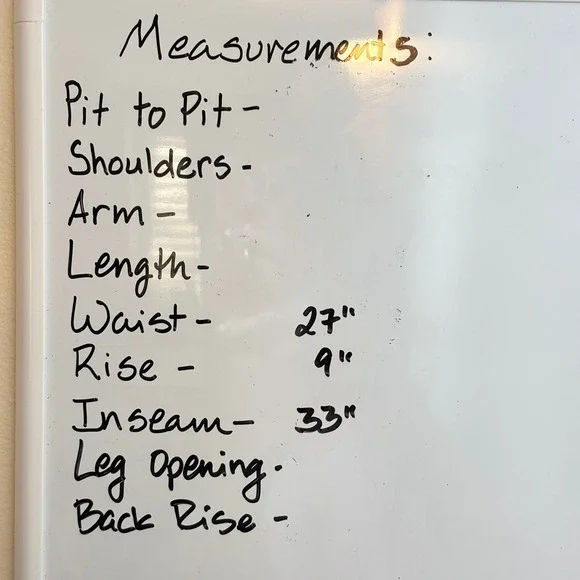 Measurements:
Pit to Pit -
Shoulders -
Arm -
Length -
Waist - 27"
Rise - 9"
Inseam - 33"
Leg Opening -
Back Rise -